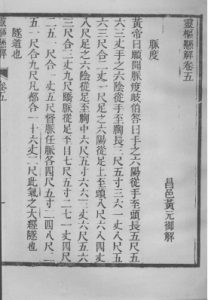 靈樞懸解卷五
昌邑黃元御解
脈度
黃帝曰願聞脈度岐伯答曰手之六陽從手至頭長五尺五
六三丈手之六陰從手至胸長三尺五寸三六一丈八尺五
六三尺合二丈一尺足之六陽從足上至頭八尺六八四丈
八尺足之六陰從足至胸中六尺五寸六六三丈六尺五六
三尺合三丈九尺蹻脈從足至目七尺五寸二七一丈四尺
二五一尺合一丈五尺督脈任脈各四尺五寸二四八尺二
五一尺合九尺凡都合一十六丈二尺此氣之大經隧也
隧道也
靈樞懸解 卷五